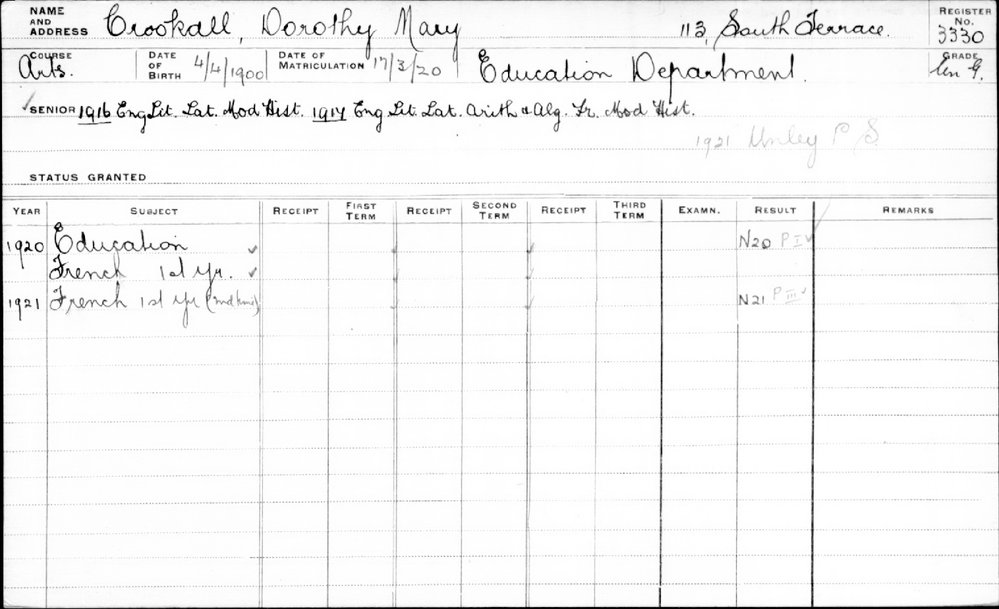 NAME AND ADDRESS Crookall, Dorothy Mary 113, South Terrace. REGISTER No. 3330
COURSE Arts. DATE OF BIRTH 4/4/1900 DATE OF MATRICULATION 17/3/20 Education Department. GRADE Un G.
SENIOR 1916 Eng Lit. Lat. Mod Hist. 1917 Eng Lit. Lat. Arith & Alg. Fr. Mod Hist.
1921 Unley P S.
STATUS GRANTED
YEAR SUBJECT RECEIPT FIRST TERM RECEIPT SECOND TERM RECEIPT THIRD TERM EXAMN. RESULT REMARKS
1920 Education ✓ ✓ ✓ N20 P I ✓
French 1st Yr. ✓ ✓ ✓
1921 French 1st Yr (2nd time) ✓ ✓ N21 P III ✓